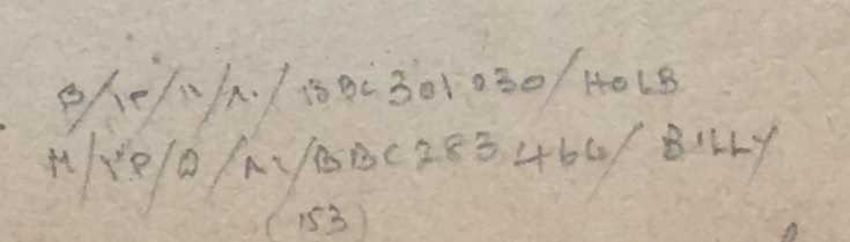 B/1P/11/A./BBC301030/HOLB
M/1P/D/A1/BBC283466/BILLY
(153)